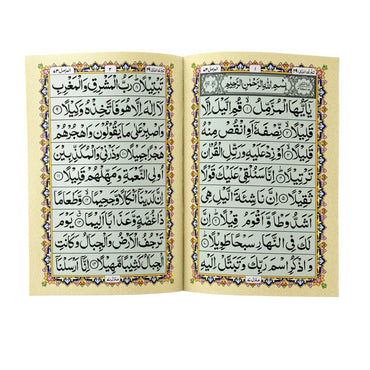 بِسْمِ اللّٰهِ الرَّحْمٰنِ الرَّحِیْمِ
یٰۤاَیُّهَا الْمُزَّمِّلُ ۙ قُمِ الَّیْلَ اِلَّا
قَلِیْلًا ۙ نِّصْفَهٗۤ اَوِ انْقُصْ مِنْهُ
قَلِیْلًا ۙ اَوْ زِدْ عَلَیْهِ وَرَتِّلِ الْقُرْاٰنَ
تَرْتِیْلًا ؕ اِنَّا سَنُلْقِیْ عَلَیْكَ قَوْلًا
ثَقِیْلًا اِنَّ نَاشِئَةَ الَّیْلِ هِیَ
اَشَدُّ وَطْاً وَّاَقْوَمُ قِیْلًا ؕ اِنَّ
لَكَ فِی النَّهَارِ سَبْحًا طَوِیْلًا ؕ
وَاذْكُرِ اسْمَ رَبِّكَ وَتَبَتَّلْ اِلَیْهِ
تَبْتِیْلًا ؕ رَبُّ الْمَشْرِقِ وَالْمَغْرِبِ
لَاۤ اِلٰهَ اِلَّا هُوَ فَاتَّخِذْهُ وَكِیْلًا
وَاصْبِرْ عَلٰی مَا یَقُوْلُوْنَ وَاهْجُرْهُمْ
هَجْرًا جَمِیْلًا وَذَرْنِیْ وَالْمُكَذِّبِیْنَ
اُولِی النَّعْمَةِ وَمَهِّلْهُمْ قَلِیْلًا
اِنَّ لَدَیْنَاۤ اَنْكَالًا وَّجَحِیْمًا ۙ وَّطَعَامًا
ذَا غُصَّةٍ وَّعَذَابًا اَلِیْمًا ۗ یَوْمَ
تَرْجُفُ الْاَرْضُ وَالْجِبَالُ وَكَانَتِ
الْجِبَالُ كَثِیْبًا مَّهِیْلًا اِنَّاۤ اَرْسَلْنَاۤ